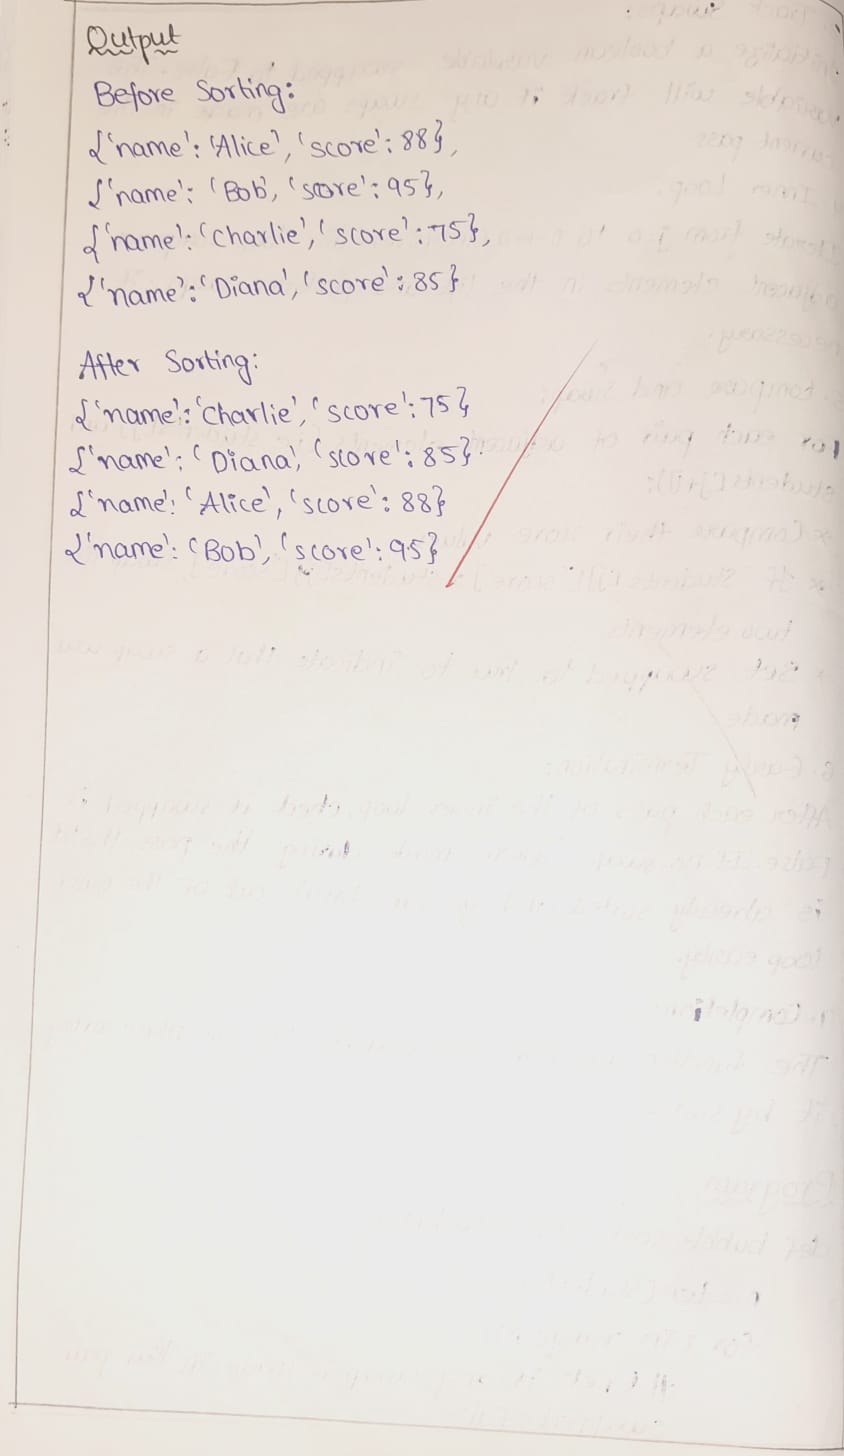 Output
Before Sorting:
{'name': 'Alice', 'score': 88},
{'name': 'Bob', 'score': 95},
{'name': 'Charlie', 'score': 75},
{'name': 'Diana', 'score': 85}
After Sorting:
{'name': 'Charlie', 'score': 75}
{'name': 'Diana', 'score': 85}
{'name': 'Alice', 'score': 88}
{'name': 'Bob', 'score': 95}